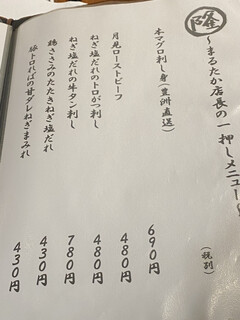 隆
〜まるたか店長の一押しメニュー〜
(税別)
本マグロ刺し身(豊洲直送) 690円
月見ローストビーフ 480円
ねぎ塩だれのトロがつ刺し 480円
ねぎ塩だれの牛タン刺し 780円
鶏ささみのたたきねぎ塩だれ 430円
豚トロればの甘ダレねぎまみれ 430円